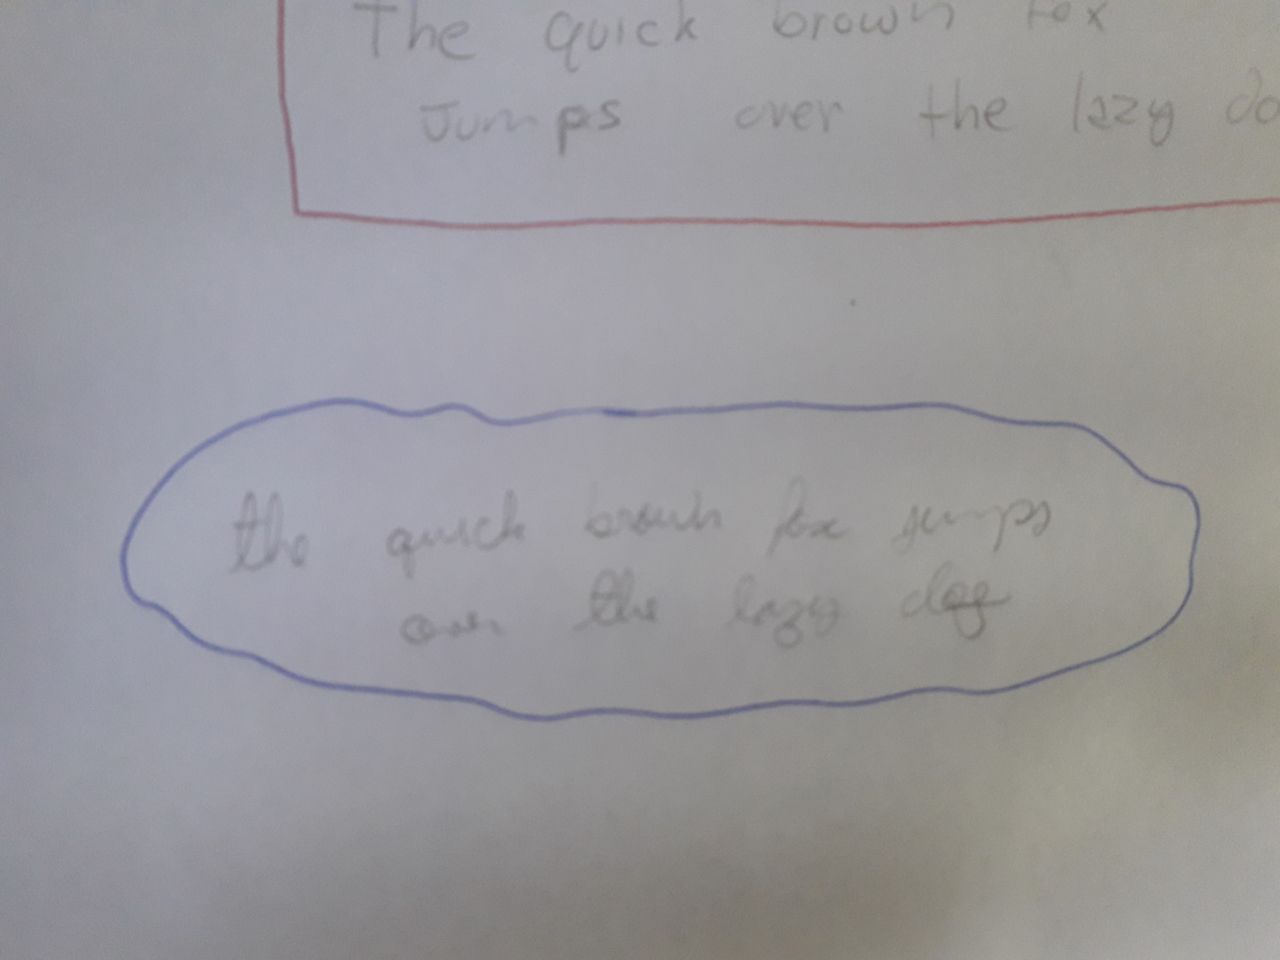 The quick brown fox
Jumps over the lazy do
the quick brown fox jumps
over the lazy dog